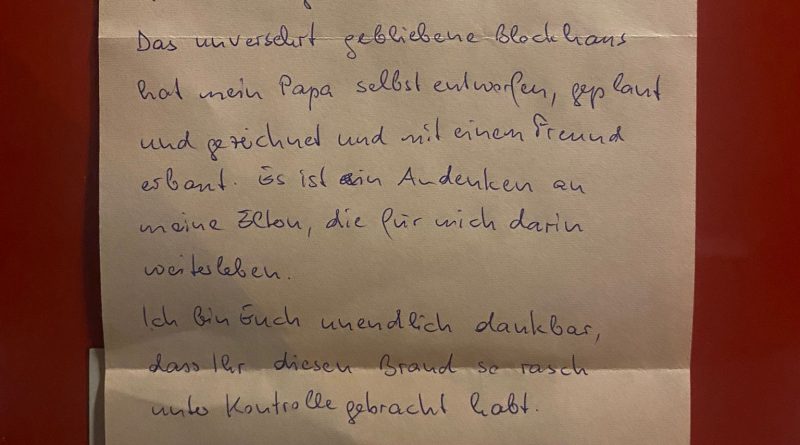 Das unversehrt gebliebene Blockhaus
hat mein Papa selbst entworfen, geplant
und gezeichnet und mit einem Freund
erbaut. Es ist ein Andenken an
meine Eltern, die für mich darin
weiterleben.
Ich bin Euch unendlich dankbar,
dass Ihr diesen Brand so rasch
unter Kontrolle gebracht habt.